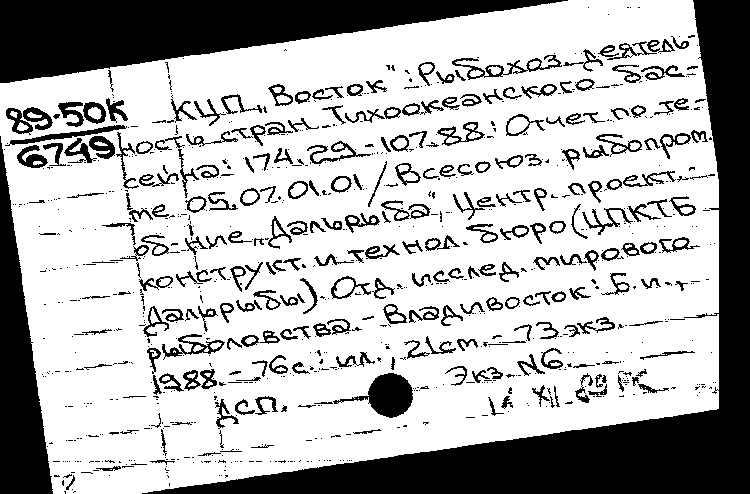 89-50К
6749
КЦП „Восток": Рыбохоз. деятель-
ность стран Тихоокеанского бас-
сейна: 174.29-107.88: Отчет по те-
ме 05.07.01.01 / Всесоюз. рыбопром.
об-ние „Дальрыба", Центр. проект.-
конструкт. и технол. бюро (ЦПКТБ
Дальрыбы). Отд. исслед. мирового
рыболовства. - Владивосток: Б. и.,
1988. - 76 с.: ил.; 21 см. - 73 экз.
ДСП. Экз. N6.
XII 89